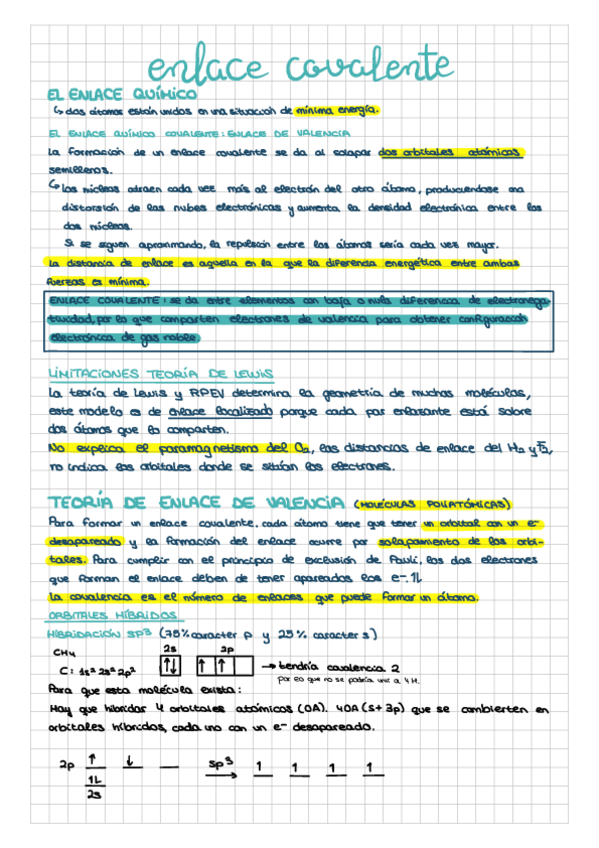 enlace covalente
EL ENLACE QUÍMICO
↳ dos átomos están unidos en una situación de mínima energía.
EL ENLACE QUÍMICO COVALENTE: ENLACE DE VALENCIA
La formación de un enlace covalente se da al solapar dos orbitales atómicos
semillenos.
↳ Los núcleos atraen cada vez más al electrón del otro átomo, produciendose una
distorsión de las nubes electrónicas y aumenta la densidad electrónica entre los
dos núcleos.
Si se siguen aproximando, la repulsión entre los átomos sería cada vez mayor.
La distancia de enlace es aquella en la que la diferencia energética entre ambas
fuerzas es mínima.
ENLACE COVALENTE: se da entre elementos con baja o nula diferencia de electronega-
tividad, por lo que comparten electrones de valencia para obtener configuración
electrónica de gas noble
LIMITACIONES TEORÍA DE LEWIS
La teoría de Lewis y RPEV determina la geometría de muchas moléculas,
este modelo es de enlace localizado porque cada par enlazante está sobre
dos átomos que lo comparten.
No explica el paramagnetismo del O₂, las distancias de enlace del H₂ y F₂,
no indica los orbitales donde se sitúan los electrones.
TEORÍA DE ENLACE DE VALENCIA (MOLÉCULAS POLIATÓMICAS)
Para formar un enlace covalente, cada átomo tiene que tener un orbital con un e-
desapareado y la formación del enlace ocurre por solapamiento de los orbi-
tales. Para cumplir con el principio de exclusión de Pauli, los dos electrones
que forman el enlace deben de tener apareados los e-. 1L
La covalencia es el número de enlaces que puede formar un átomo.
ORBITALES HÍBRIDOS
HIBRIDACIÓN SP³ (75% caracter p y 25% caracter s)
CH₄ 2s 2p
C: 1s² 2s² 2p² ↑↓ ↑ ↑ → tendría covalencia 2
por lo que no se podría unir a 4 H.
Para que esta molécula exista:
Hay que hibridar 4 orbitales atómicos (OA). 4OA (s + 3p) que se cambierten en
orbitales híbridos, cada uno con un e- desapareado.
2p ↑ ↓ sp³ 1 1 1 1
1L
2s